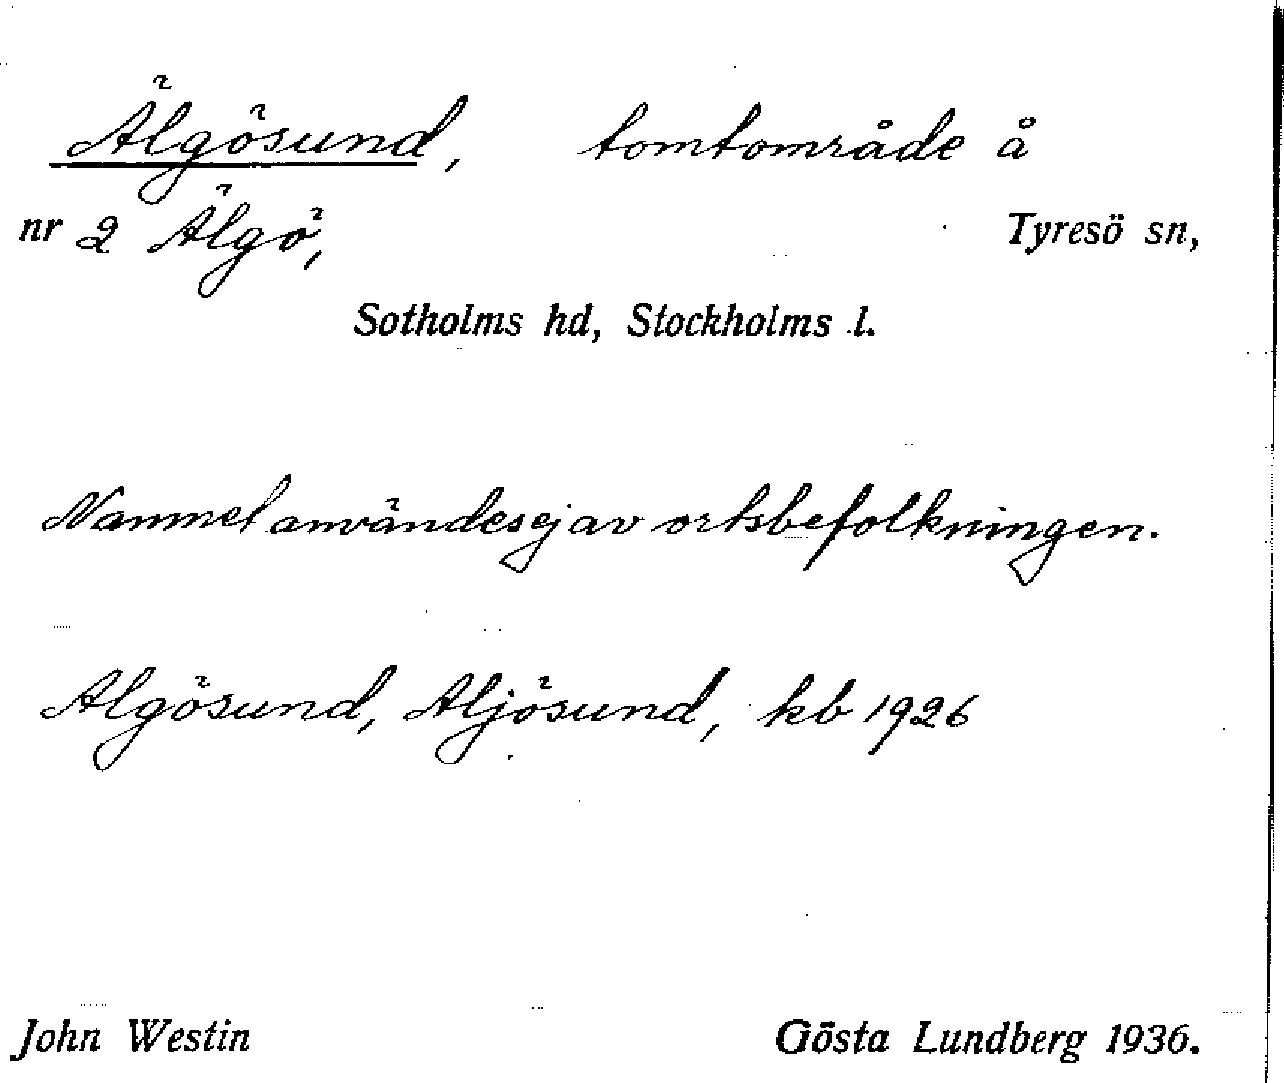 Älgösund, tomtområde å
nr 2 Älgö, Tyresö sn,
Sotholms hd, Stockholms l.
Namnet användes ej av ortsbefolkningen.
Algösund, Aljösund, kb 1926
John Westin Gösta Lundberg 1936.